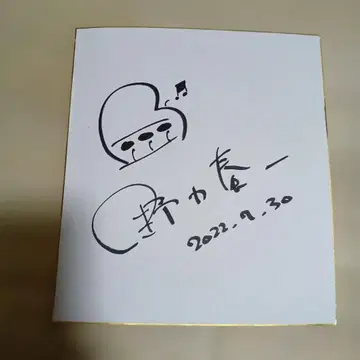 野力奏一
2022.9.30